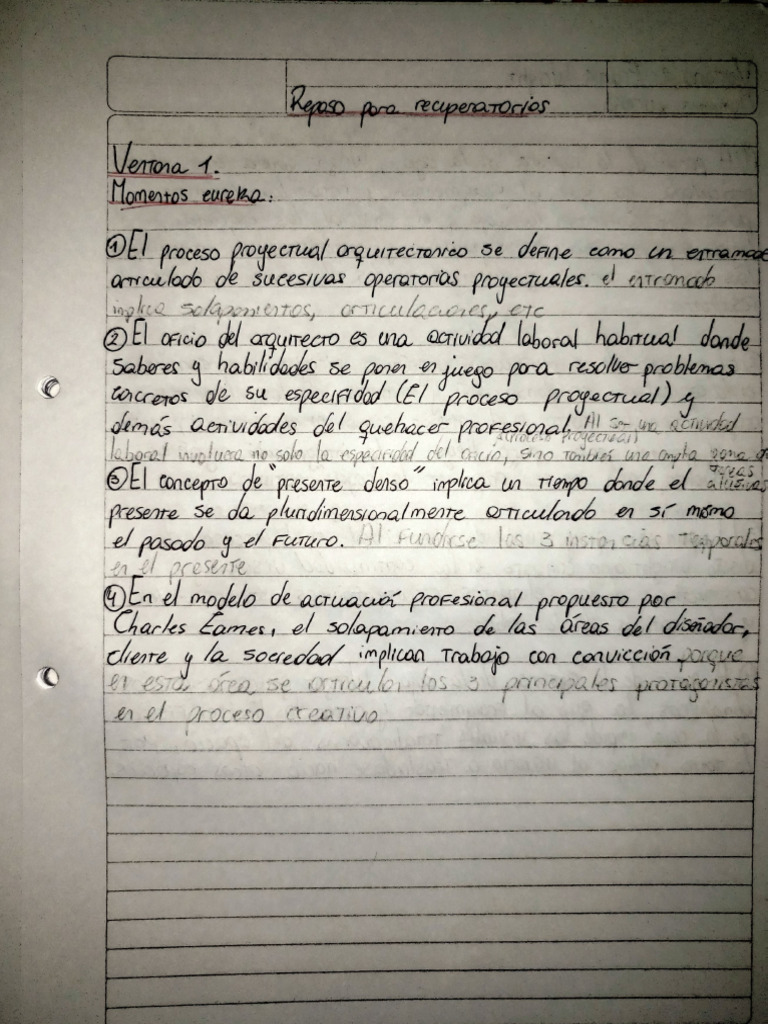 Repaso para recuperatorios
Ventana 1.
Momentos eureka:
① El proceso proyectual arquitectonico se define como un entramado
articulado de sucesivas operatorias proyectuales. el entramado
implica solapamientos, articulaciones, etc
② El oficio del arquitecto es una actividad laboral habitual donde
saberes y habilidades se ponen en juego para resolver problemas
concretos de su especifidad (El proceso proyectual) y
demás actividades del quehacer profesional, Al ser una actividad
(proceso proyectual)
laboral involucra no solo la especificidad del oficio, sino también una amplia gama de
tareas
③ El concepto de "presente denso" implica un tiempo donde el alusivas
presente se da pluridimensionalmente articulando en sí mismo
el pasado y el futuro. Al fundirse las 3 instancias temporales
en el presente
④ En el modelo de actuación profesional propuesto por
Charles Eames, el solapamiento de las áreas del diseñador,
cliente y la sociedad implican trabajo con convicción porque
en esta área se articulan los 3 principales protagonistas
en el proceso creativo